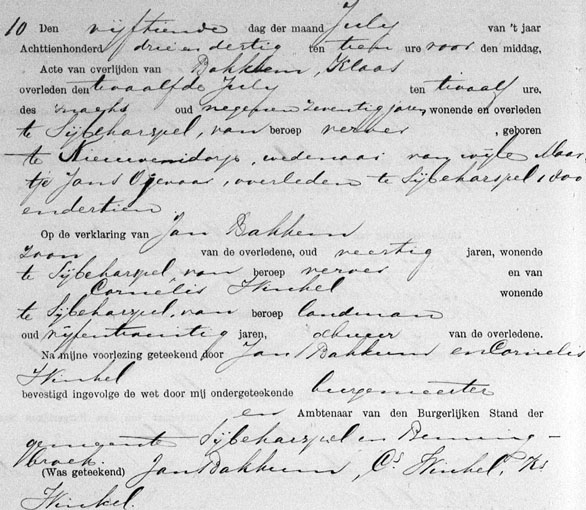 10 Den vijftiende dag der maand July van 't jaar
Achttienhonderd drie en dertig ten tien ure voor den middag,
Acte van overlijden van Bakkum, Klaas
overleden den twaalfde July ten twaalf ure,
des nachts oud negen en zeventig jaren, wonende en overleden
te Sijbekarspel, van beroep verver, geboren
te Nieuwe weduwnaar van wijle Maar
tje Jans overleden te Sijbekarspel 1800
en dertien
Op de verklaring van Jan Bakkum
zoon van de overledene, oud veertig jaren, wonende
te Sijbekarspel, van beroep verver en van
Cornelis Winkel wonende
te Sijbekarspel, van beroep landman
oud vijfentwintig jaren, van de overledene.
Na mijne voorlezing geteekend door Jan Bakkum en Cornelis
Winkel
bevestigd ingevolge de wet door mij ondergeteekende burgemeester
en Ambtenaar van den Burgerlijken Stand der
gemeente Sijbekarspel en Benning-
broek.
(Was geteekend) Jan Bakkum, Cs Winkel, Ks
Winkel.